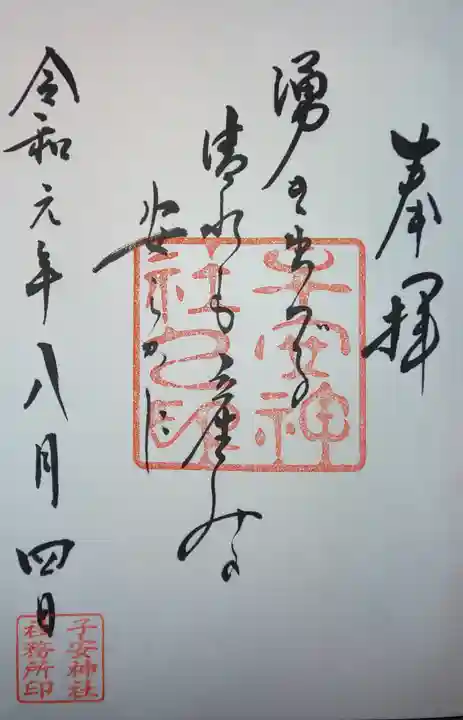 奉拝
湧き出づる
清水も産しみの
安らかに
子安神
社之印
令和元年八月四日
子安神社
社務所印